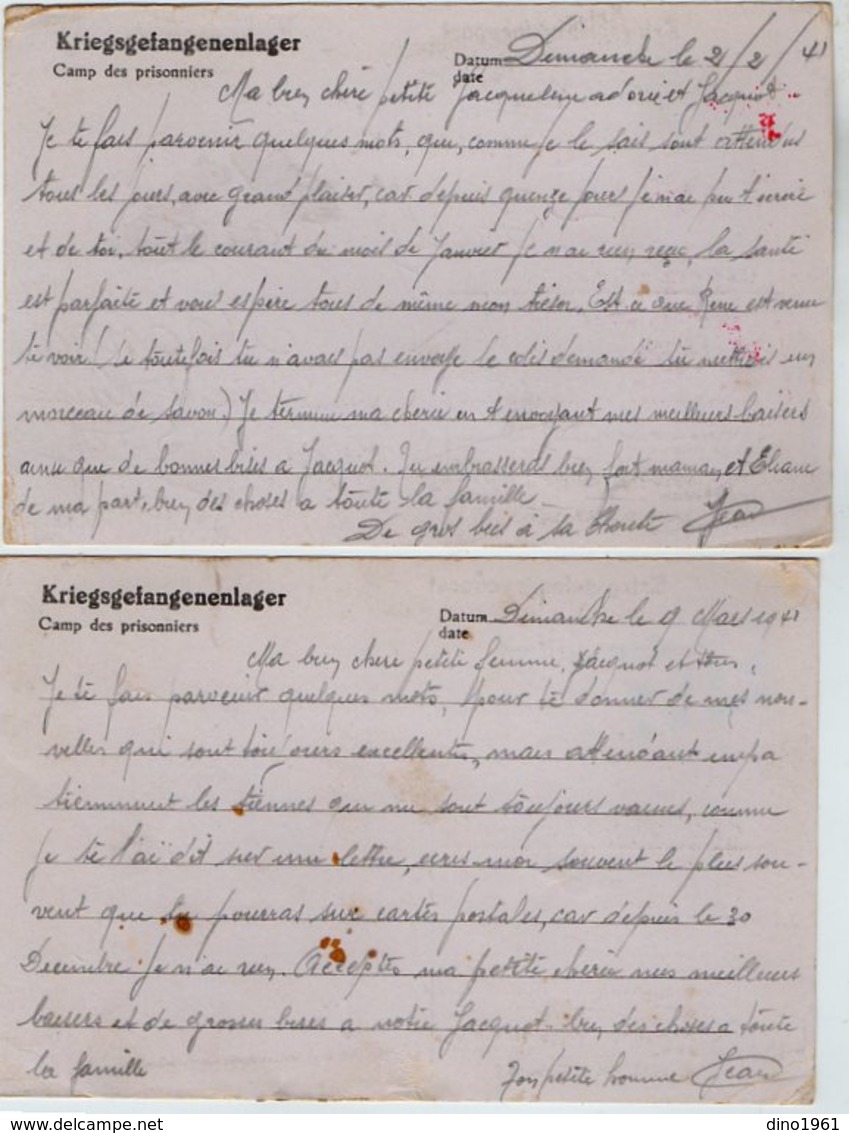 Kriegsgefangenenlager
Camp des prisonniers
Datum Dimanche le 2/2/41
date
Ma bien chère petite Jacqueline adorée et Jacquot.
Je te fais parvenir quelques mots, que, comme je le sais sont attendus
tous les jours, avec grand plaisir, car depuis quinze jours je n'ai pu t'écrire
et de toi, tout le courant du mois de Janvier je n'ai rien reçu, la santé
est parfaite et vous espère tous de même mon trésor. Est ce que René est venu
te voir! (Si toutefois tu n'avais pas envoyé le colis demandé tu mettrais un
morceau de savon.) Je termine ma chérie en t'envoyant mes meilleurs baisers
ainsi que de bonnes bises a Jacquot. Tu embrasseras bien fort maman et Eliane
de ma part, bien des choses a toute la famille
De gros becs à sa Jean
Kriegsgefangenenlager
Camp des prisonniers
Datum Dimanche le 9 Mars 1941
date
Ma bien chère petite femme, Jacquot et tous,
Je te fais parvenir quelques mots, pour te donner de mes nou-
velles qui sont toujours excellentes, mais attendant impa
tiemment les tiennes qui me sont toujours vaines, comme
je te l'ai dit sur une lettre, ecris-moi souvent le plus sou-
vent que tu pourras sur cartes postales, car depuis le 30
Decembre je n'ai rien. Acceptes ma petite cherie mes meilleurs
baisers et de grosses bises a notre Jacquot. bien des choses a toute
la famille
Ton petit homme Jean
delcampe.net
dino1961